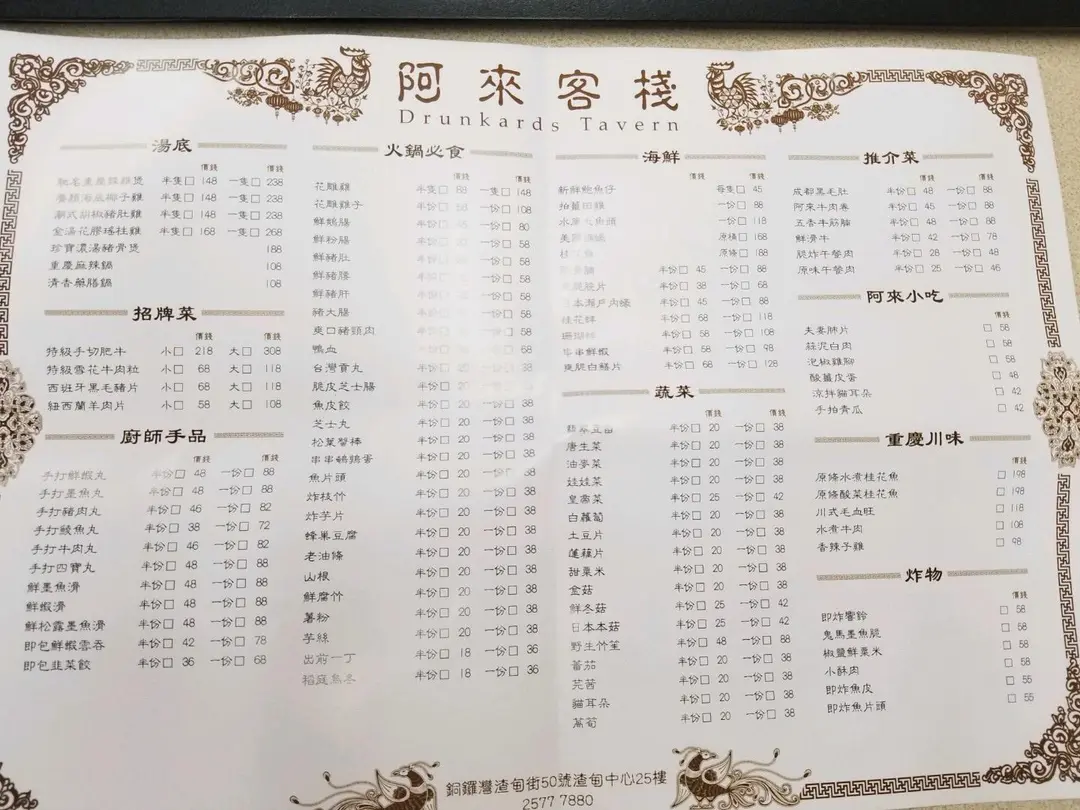 阿來客棧
Drunkards Tavern
湯底
價錢 價錢
半隻□ 148 一隻□ 238
椰子雞 半隻□ 148 一隻□ 238
潮式胡椒豬肚雞 半隻□ 148 一隻□ 238
金湯花膠瑤柱雞 半隻□ 168 一隻□ 268
珍寶濃湯豬骨煲 188
重慶麻辣鍋 108
清香藥膳鍋 108
招牌菜
價錢 價錢
特級手切肥牛 小□ 218 大□ 308
特級雪花牛肉粒 小□ 68 大□ 118
西班牙黑毛豬片 小□ 68 大□ 118
紐西蘭羊肉片 小□ 58 大□ 108
廚師手品
價錢 價錢
手打鮮蝦丸 半份□ 48 一份□ 88
手打墨魚丸 半份□ 48 一份□ 88
手打豬肉丸 半份□ 46 一份□ 82
手打鯪魚丸 半份□ 38 一份□ 72
手打牛肉丸 半份□ 46 一份□ 82
手打四寶丸 半份□ 48 一份□ 88
鮮墨魚滑 半份□ 48 一份□ 88
鮮蝦滑 半份□ 48 一份□ 88
鮮松露墨魚滑 半份□ 48 一份□ 88
即包鮮蝦雲吞 半份□ 42 一份□ 78
即包韭菜餃 半份□ 36 一份□ 68
火鍋必食
價錢 價錢
花雕雞 半隻□ 88 一隻□ 148
花雕雞子 一份□ 108
鮮鴨腸 一份□ 80
鮮粉腸 一份□ 58
鮮豬肚 一份□ 58
鮮豬膶 一份□ 58
鮮豬肝 一份□ 58
豬大腸 一份□ 58
爽口豬頸肉 一份□ 58
鴨血 一份□ 38
台灣貢丸 半份□ 20 一份□ 38
脆皮芝士腸 半份□ 20 一份□ 38
魚皮餃 半份□ 20 一份□ 38
芝士丸 半份□ 20 一份□ 38
松葉蟹棒 半份□ 20 一份□ 38
串串鵪鶉蛋 半份□ 20 一份□ 38
魚片頭 半份□ 20 一份 58
炸枝竹 半份□ 20 一份□ 38
炸芋片 半份□ 20 一份□ 38
蜂巢豆腐 半份□ 20 一份□ 38
老油條 半份□ 20 一份□ 38
山根 半份□ 20 一份□ 38
鮮腐竹 半份□ 20 一份□ 38
薯粉 半份□ 20 一份□ 38
芋絲 半份□ 20 一份□ 38
出前一丁 半份□ 18 一份□ 36
稻庭烏冬 半份□ 18 一份□ 36
海鮮
價錢 價錢
新鮮鮑魚仔 每隻□ 45
拍薑田雞 一份□ 88
魚頭 一份□ 118
原條□ 168
原條□ 188
半份□ 45 一份□ 88
半份□ 38 一份□ 68
日本瀨戶內蠔 半份□ 45 一份□ 88
桂花蚌 半份□ 68 一份□ 118
珊瑚蚌 半份□ 58 一份□ 108
串串鮮蝦 半份□ 58 一份□ 98
爽脆白鱔片 半份□ 68 一份□ 128
蔬菜
價錢 價錢
翡翠豆苗 半份□ 20 一份□ 38
唐生菜 半份□ 20 一份□ 38
油麥菜 半份□ 20 一份□ 38
娃娃菜 半份□ 20 一份□ 38
皇帝菜 半份□ 25 一份□ 42
白蘿蔔 半份□ 20 一份□ 38
土豆片 半份□ 20 一份□ 38
蓮藕片 半份□ 20 一份□ 38
甜粟米 半份□ 20 一份□ 38
金菇 半份□ 20 一份□ 38
鮮冬菇 半份□ 25 一份□ 42
日本本菇 半份□ 25 一份□ 42
野生竹笙 半份□ 48 一份□ 88
蕃茄 半份□ 20 一份□ 38
芫茜 半份□ 20 一份□ 38
貓耳朵 半份□ 20 一份□ 38
萵筍 半份□ 20 一份□ 38
推介菜
價錢 價錢
成都黑毛肚 半份□ 48 一份□ 88
阿來牛肉卷 半份□ 45 一份□ 88
五香牛筋腩 半份□ 48 一份□ 88
鮮滑牛 半份□ 42 一份□ 78
脆炸午餐肉 半份□ 28 一份□ 48
原味午餐肉 半份□ 25 一份□ 46
阿來小吃
價錢
夫妻肺片 □ 58
蒜泥白肉 □ 58
泡椒雞腳 □ 58
酸薑皮蛋 □ 48
涼拌貓耳朵 □ 42
手拍青瓜 □ 42
重慶川味
價錢
原條水煮桂花魚 □ 198
原條酸菜桂花魚 □ 198
川式毛血旺 □ 118
水煮牛肉 □ 108
香辣子雞 □ 98
炸物
價錢
即炸響鈴 □ 58
鬼馬墨魚脆 □ 58
椒鹽鮮粟米 □ 58
小酥肉 □ 58
即炸魚皮 □ 55
即炸魚片頭 □ 55
銅鑼灣渣甸街50號渣甸中心25樓
2577 7880